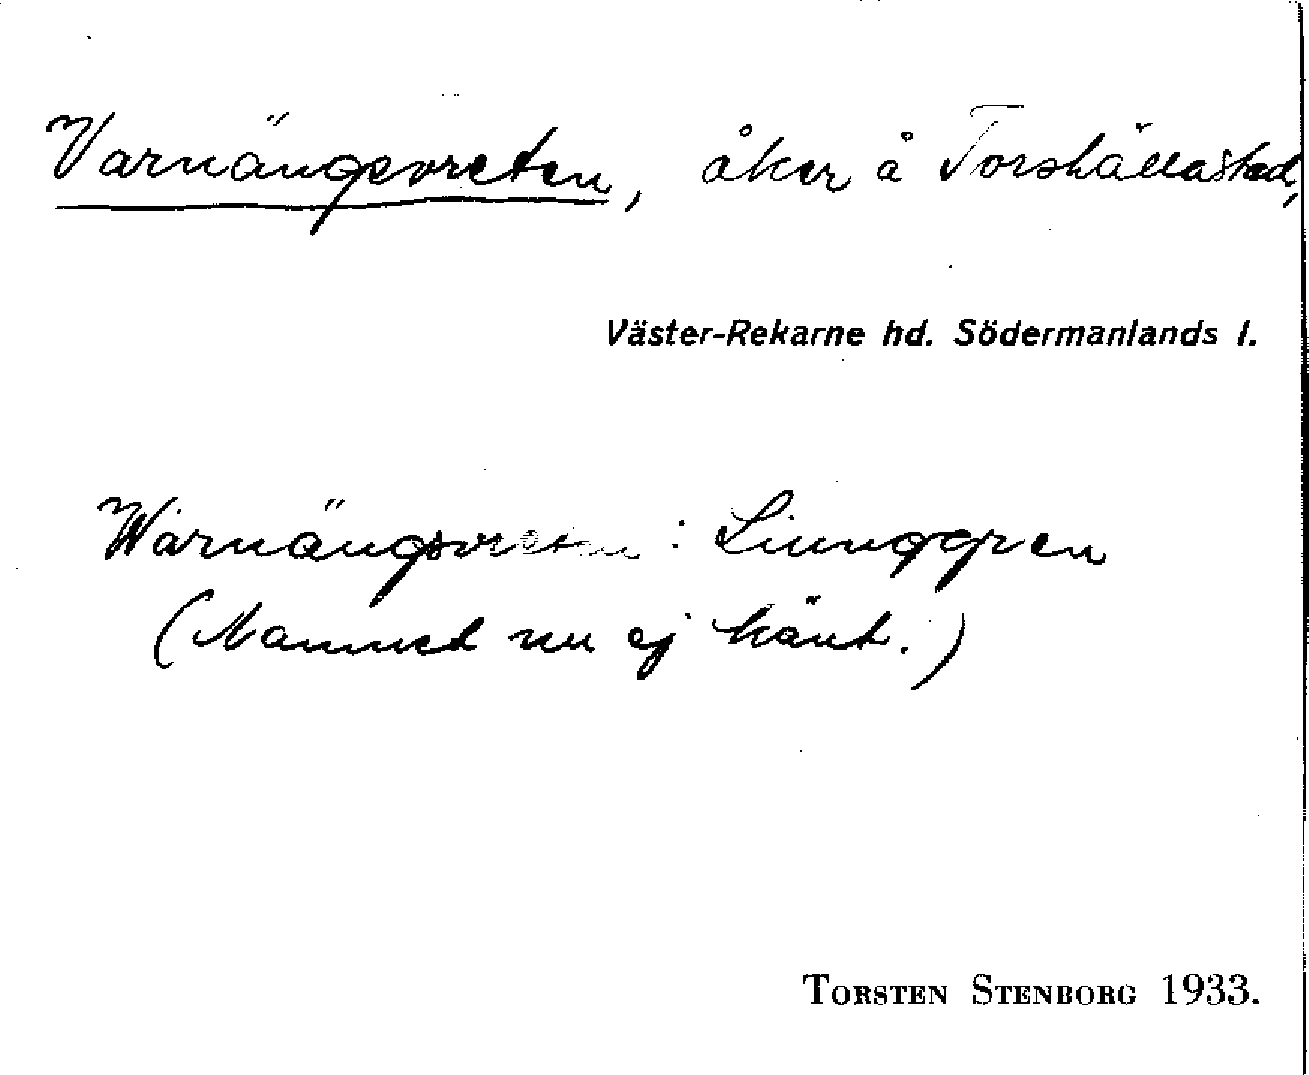 Varnängsvreten, åker å Torshälla stad,
Väster-Rekarne hd. Södermanlands l.
Warnängsvreten : Liunggren
(Namnet nu ej känt.)
TORSTEN STENBORG 1933.